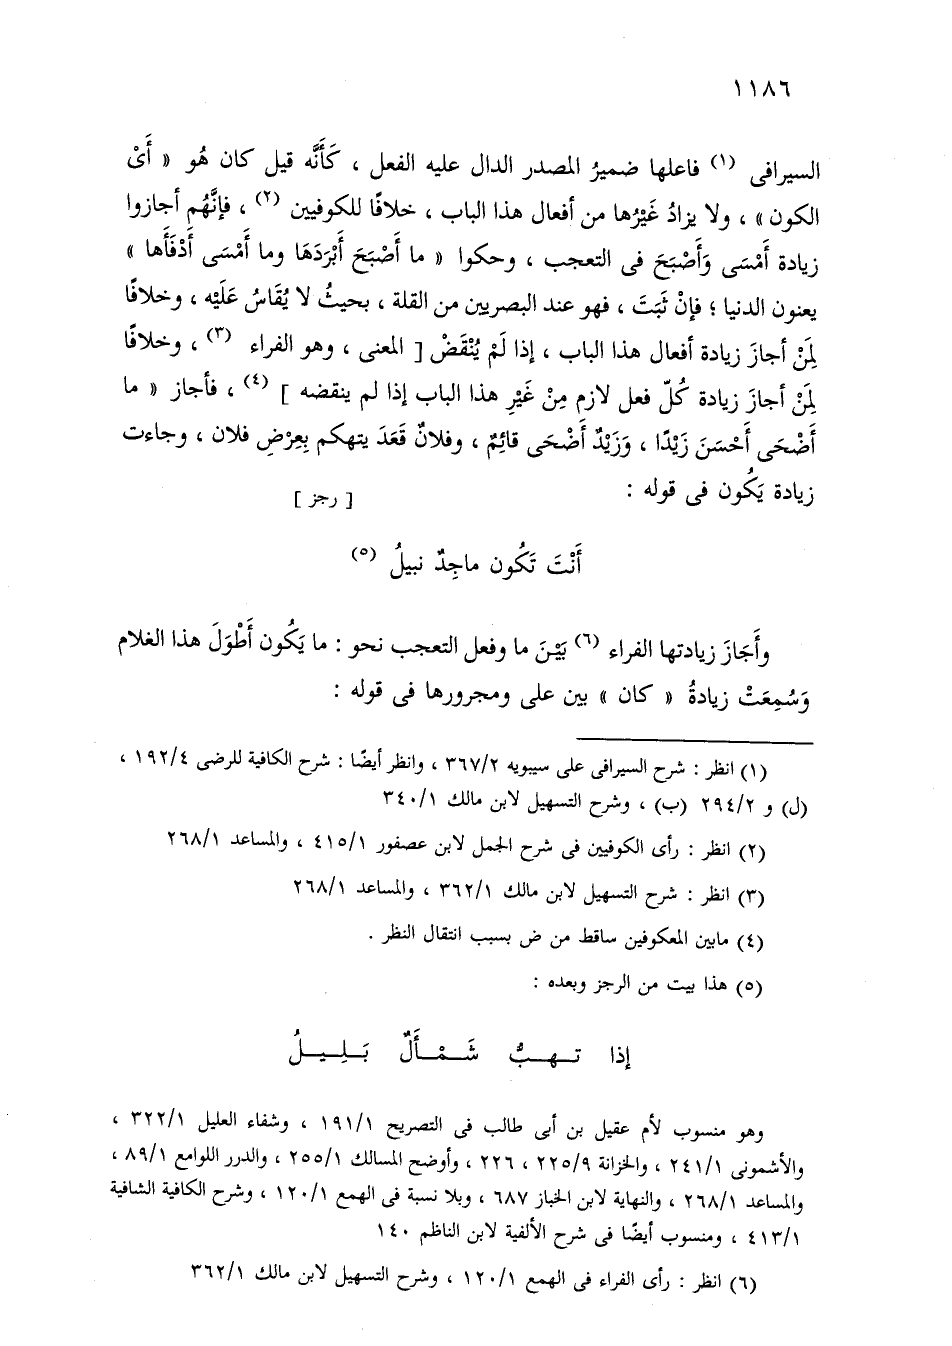 ١١٨٦
السيرافى (١) فاعلها ضميرُ المصدر الدال عليه الفعل ، كَأَنَّه قيل كان هُو « أَىْ
الكون » ، ولا يزادُ غَيْرُها من أفعال هذا الباب ، خلافًا للكوفيين (٢) ، فإنَّهُم أجازوا
زيادة أَمْسَى وَأَصْبَحَ فى التعجب ، وحكوا « ما أَصْبَحَ أَبْرَدَهَا وما أَمْسَى أَدْفَأَها »
يعنون الدنيا ؛ فإنْ ثَبَتَ ، فهو عند البصريين من القلة ، بحيثُ لا يُقَاسُ عَلَيْه ، وخلافًا
لِمَنْ أجازَ زيادة أفعال هذا الباب ، إذا لَمْ يُنْقَضْ [ المعنى ، وهو الفراء (٣) ، وخلافًا
لِمَنْ أجازَ زيادة كُلّ فعل لازم مِنْ غَيْرِ هذا الباب إذا لم ينقضه ] (٤) ، فأجاز « ما
أَضْحَى أَحْسَنَ زَيْدًا ، وَزَيْدٌ أَضْحَى قائِمٌ ، وفلانٌ قَعَدَ يتهكم بِعِرْضِ فلان ، وجاءت
زيادة يَكُون فى قوله : [ رجز ]
أَنْتَ تَكُون ماجِدٌ نبيلُ (٥)
وأَجَازَ زيادتها الفراء (٦) بَيْنَ ما وفعل التعجب نحو : ما يَكُون أَطْوَلَ هذا الغلام
وَسُمِعَتْ زيادةُ « كان » بين على ومجرورها فى قوله :
(١) انظر : شرح السيرافى على سيبويه ٣٦٧/٢ ، وانظر أيضًا : شرح الكافية للرضى ١٩٢/٤ ،
(ل) و ٢٩٤/٢ (ب) ، وشرح التسهيل لابن مالك ٣٤٠/١
(٢) انظر : رأى الكوفيين فى شرح الجمل لابن عصفور ٤١٥/١ ، والمساعد ٢٦٨/١
(٣) انظر : شرح التسهيل لابن مالك ٣٦٢/١ ، والمساعد ٢٦٨/١
(٤) مابين المعكوفين ساقط من ض بسبب انتقال النظر .
(٥) هذا بيت من الرجز وبعده :
إذا تهبُّ شَمْأَلٌ بَلِيلُ
وهو منسوب لأم عقيل بن أبى طالب فى التصريح ١٩١/١ ، وشفاء العليل ٣٢٢/١ ،
والأشمونى ٢٤١/١ ، والخزانة ٢٢٥/٩ ، ٢٢٦ ، وأوضح المسالك ٢٥٥/١ ، والدرر اللوامع ٨٩/١ ،
والمساعد ٢٦٨/١ ، والنهاية لابن الخباز ٦٨٧ ، وبلا نسبة فى الهمع ١٢٠/١ ، وشرح الكافية الشافية
٤١٣/١ ، ومنسوب أيضًا فى شرح الألفية لابن الناظم ١٤٠
(٦) انظر : رأى الفراء فى الهمع ١٢٠/١ ، وشرح التسهيل لابن مالك ٣٦٢/١